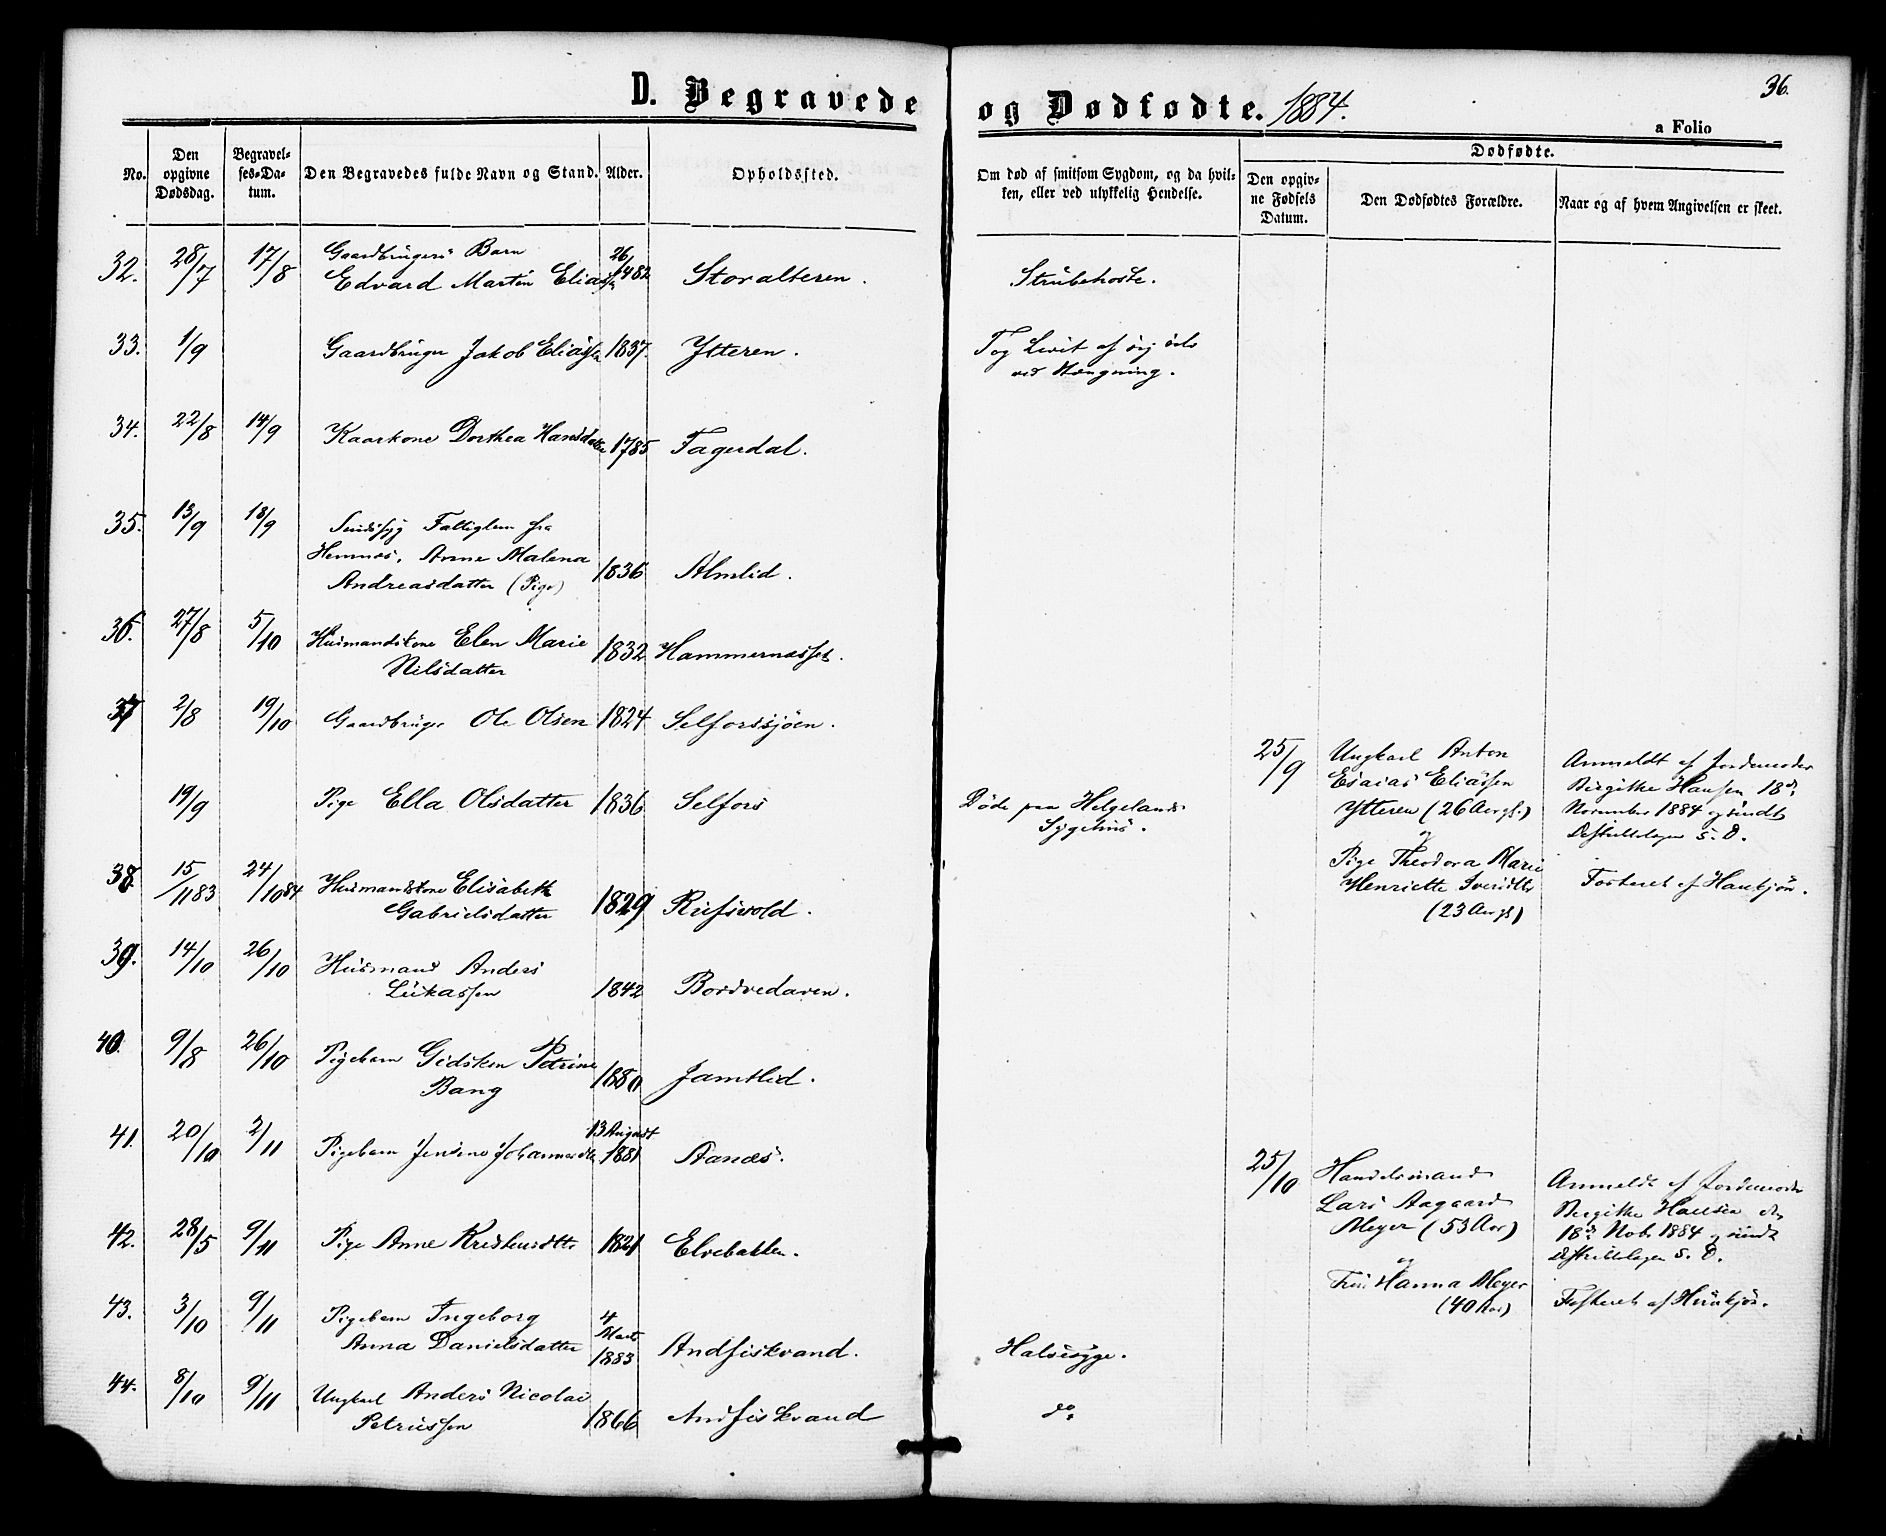 D. Begravede og Dødfødte. 1884.
36.
a Folio
No.
Den opgivne Dødsdag.
Begravelses-Datum.
Den Begravedes fulde Navn og Stand.
Alder.
Opholdssted.
Om død af smitsom Sygdom, og da hvilken, eller ved ulykkelig Hendelse.
Dødfødte.
Den opgivne Fødsels Datum.
Den Dødfødtes Forældre.
Naar og af hvem Angivelsen er skeet.
32. 28/7 17/8 Gaardbrugers Barn 26/4 82
Edvard Martin Eliass. Storalteren. Strubehoste.
33. 1/9 Gaardbruger Jakob Eliassen 1837. Ytteren. Tog Livit af sig selv
ved Hængning.
34. 22/8 14/9 Kaarkone Dorthea Hansdatter 1785 Fagerdal.
35. 13/9 18/9 Sindssyg Fattiglem fra
Hemnæs, Anne Malena
Andreasdatter (Pige) 1836 Almlid.
36. 27/8 5/10 Husmandskone Elen Marie
Nilsdatter 1832 Hammernæsset.
37 2/8 19/10 Gaardbruger Ole Olsen 1824 Selforssjøen.
19/9 Pige Ella Olsdatter 1836 Selfors Døde paa Helgelands
Sygehus.
25/9 Ungkarl Anton
Esaias Eliassen
Ytteren (26 Aar gl.)
og
Pige Theodora Marie
Henriette
(23 Aar gl)
Anmeldt af Jordemoder
Birgitte Hansen 18de
November 1884 og sendt
Distriktslægen s. D.
Fosteret af Hunkjøn.
38. 15/11 83 24/10 84 Husmandskone Elisabeth
Gabrielsdatter 1829 Rufsvold.
39. 14/10 26/10 Husmand Anders
Lukassen 1842 Bordvedaven.
40. 9/8 26/10 Pigebarn Gidsken Petrine
Bang 1880 Jamtlid.
41. 20/10 2/11 Pigebarn Jensine Johannesdtr 13 August 1881 Aanæs.
42. 28/5 9/11 Pige Anne 1821 Elvebakken.
25/10 Handelsmand
Lars Aagaard
Meyer (53 Aar)
og
Fru Hanna Meyer
(40 Aar)
Anmeldt af Jordemoder
Birgitte Hansen den
18de Nob. 1884 og sendt
Distriktslægen s. D.
Fosteret af Hunkjøn.
43. 3/10 9/11 Pigebarn Ingeborg
Anna Danielsdatter 4 Marts 1883 Andfiskvand. Halssyge.
44. 8/10 9/11 Ungkarl Anders Nicolai
Petrussen 1866 Andfiskvand do.